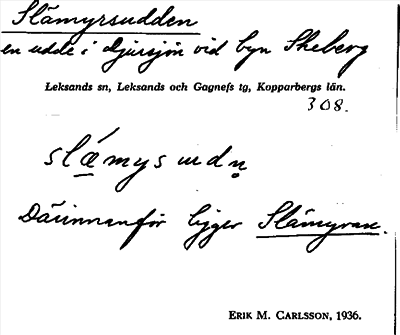 Slämyrsudden
en udde i Djursjön vid byn Skeberg
Leksands sn, Leksands och Gagnefs tg, Kopparbergs län.
308.
slǽmysudn̥
Därinnanför ligger Slämyran.
ERIK M. CARLSSON, 1936.